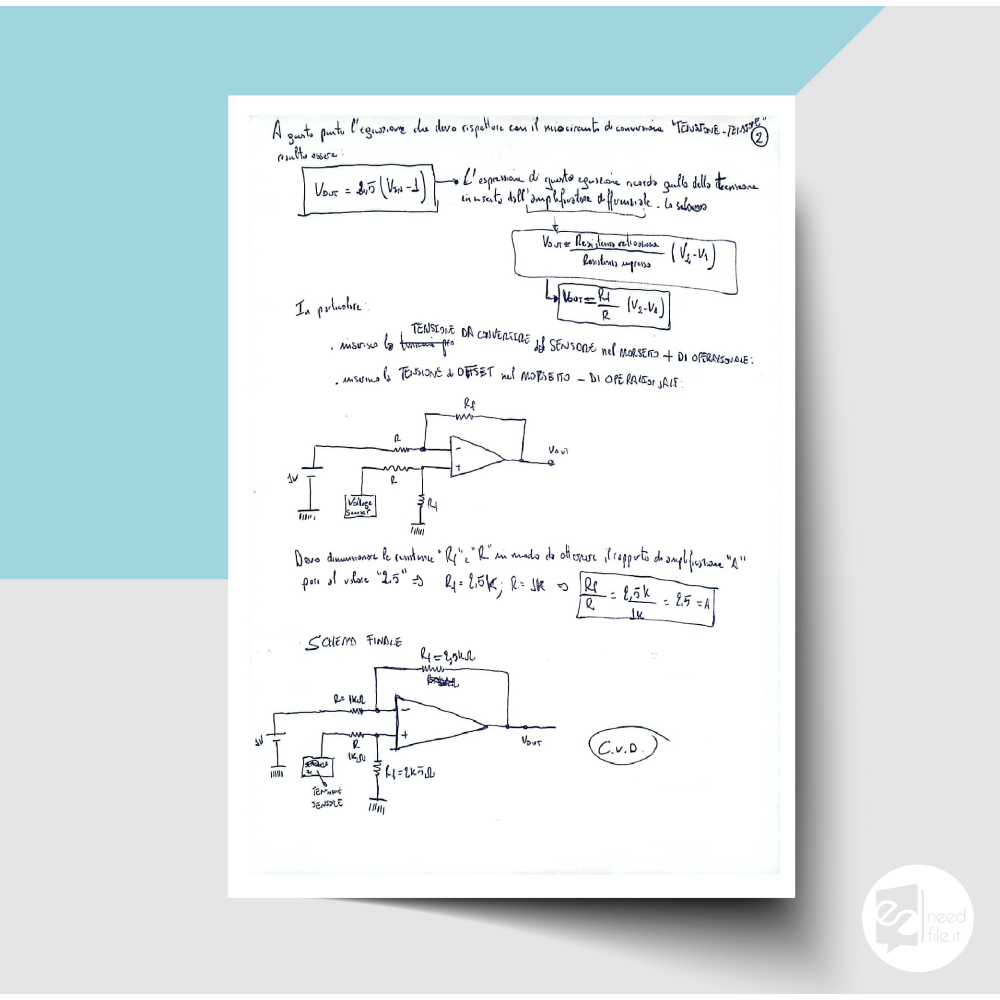 A questo punto l'equazione che devo rispettare con il mio circuito di conversione "TENSIONE-TENSIONE"
2
risulta essere:
VOUT = 2,5 (VIN - 1)
L'espressione di questa equazione ricorda quella della tensione
in uscita dall'amplificatore differenziale. Lo
VOUT = Resistenza reazione / Resistenza ingresso (V2 - V1)
VOUT = Rf / R (V2 - V1)
In particolare:
. inserisco la TENSIONE DA CONVERTIRE SENSORE nel MORSETTO + DI OPERAZIONALE:
. inserisco la TENSIONE di OFFSET nel MORSETTO - DI OPERAZIONALE:
Rf
R
VOUT
-
+
1V
R
Voltage
sensor
Rf
Devo dimensionare le resistenze "Rf" e "R" in modo da ottenere il rapporto di amplificazione "A"
pari al valore "2.5" => Rf = 2,5K; R = 1K => Rf / R = 2,5K / 1K = 2,5 = A
SCHEMA FINALE
Rf = 2,5KΩ
R = 1KΩ
-
+
1V
R
1KΩ
VOUT
C.V.D.
Rf = 2K5Ω
TENSIONE
SENSORE
need
file.it